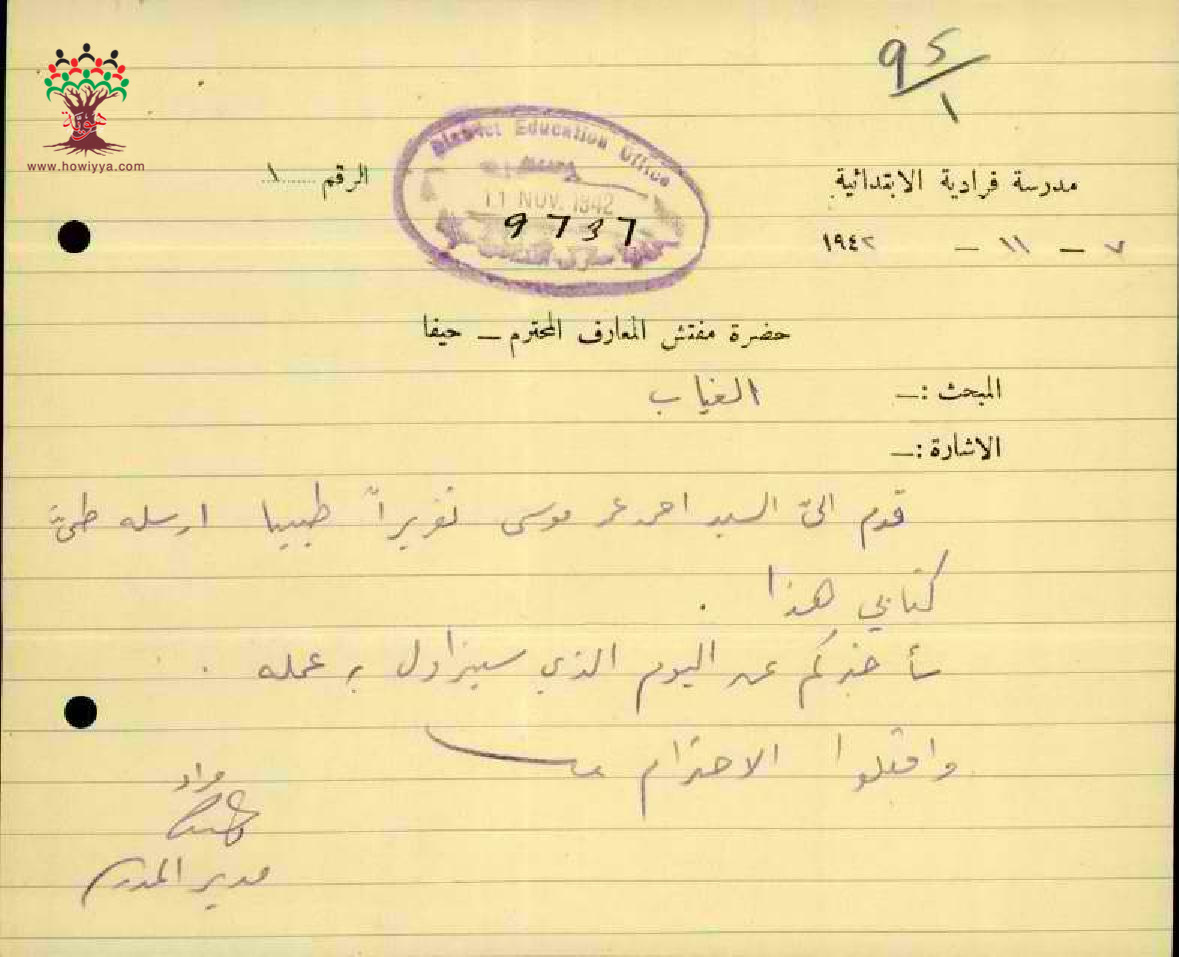 ٩٤/١
هوية
www.howiyya.com
District Education Office
11 NOV. 1942
9737
مدرسة فرادية الابتدائية
الرقم ١
٧ - ١١ - ١٩٤٢
حضرة مفتش المعارف المحترم - حيفا
المبحث :- الغياب
الاشارة :-
قدم اليّ السيد احمد عمر موسى تقريراً طبيبا ارسله طيّ
كتابي هذا .
سأخبركم عن اليوم الذي سيزاول به عمله .
واقبلوا الاحترام
مراد
مدير المدرسة